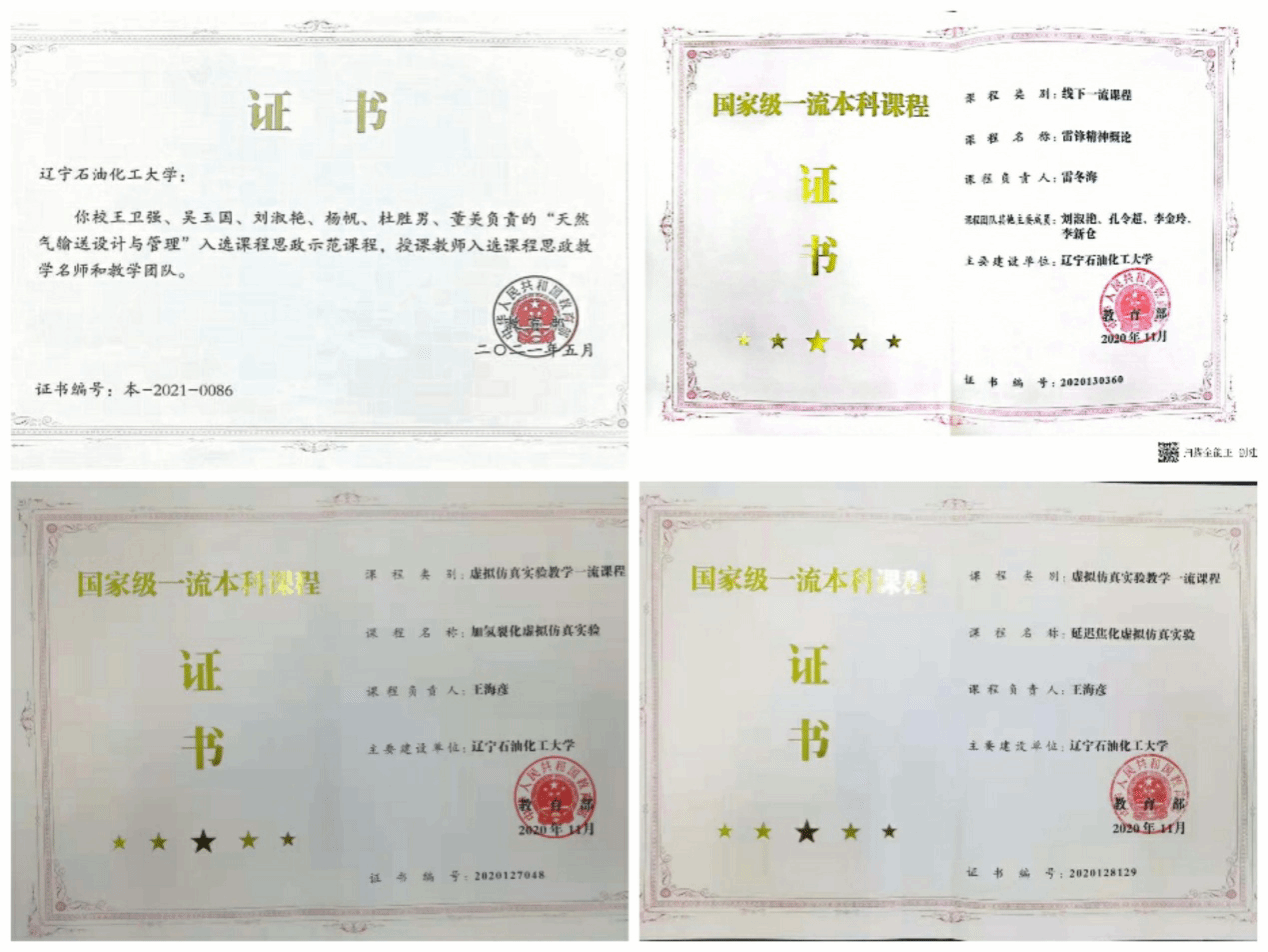 证 书
辽宁石油化工大学：
你校王卫强、吴玉国、刘淑艳、杨帆、杜胜男、董美负责的“天然
气输送设计与管理”入选课程思政示范课程，授课教师入选课程思政教
学名师和教学团队。
中华人民共和国教育部
教育部
二〇二一年五月
证书编号：本-2021-0086
国家级一流本科课程
证
书
课程类别：线下一流课程
课程名称：雷锋精神概论
课程负责人：雷冬海
课程团队其他主要成员：刘淑艳、孔令超、李金玲、
李新仓
主要建设单位：辽宁石油化工大学
中华人民共和国教育部
教育部
2020年11月
证书编号：2020130360
国家级一流本科课程
证
书
课程类别：虚拟仿真实验教学一流课程
课程名称：加氢裂化虚拟仿真实验
课程负责人：王海彦
主要建设单位：辽宁石油化工大学
中华人民共和国教育部
教育部
2020年11月
证书编号：2020127048
国家级一流本科课程
证
书
课程类别：虚拟仿真实验教学一流课程
课程名称：延迟焦化虚拟仿真实验
课程负责人：王海彦
主要建设单位：辽宁石油化工大学
中华人民共和国教育部
教育部
2020年11月
证书编号：2020128129